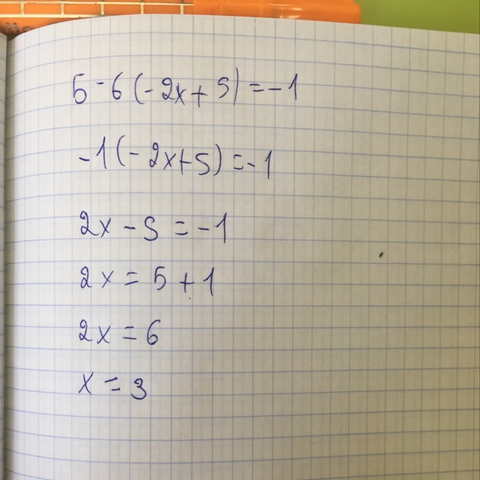 5-6(-2x+5)=-1
-1(-2x+5)=-1
2x-5=-1
2x=5+1
2x=6
x=3